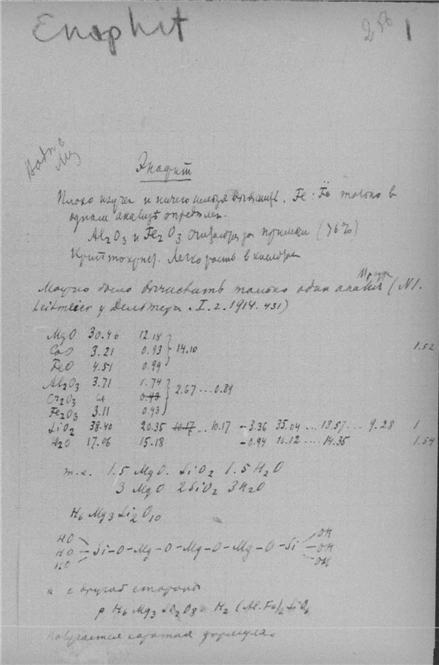 Enophit
256 1
Энофит
Плохо изучен и ничего нельзя Fe · Fe только в
одном анализе определен.
Al2O3 и Fe2O3 (76%)
Криптокрист. Легко раств. в кислотах
Можно было вычислить только один анализ (N1.
Leitmeier у Дельтера. I. 2. 1914. 431)
MgO 30.46 12.18
CaO 3.21 0.93 } 14.10 1.52
FeO 4.51 0.99
Al2O3 3.71 1.74
Cr2O3 } 2.67 ... 0.89
Fe2O3 3.11 0.93
SiO2 38.40 20.35 10.17 .. 10.17 -3.36 35.04 ... 18.57 ... 9.28 1
H2O 17.06 15.18 -0.94 16.12 ... 14.35 1.54
т.е. 1.5 MgO. SiO2 1.5 H2O
3 MgO 2SiO2 3H2O
H6 Mg3 Si2O10
HO OH
HO Si-O-Mg-O-Mg-O-Mg-O-Si OH
HO OH
и с другой стороны
p H6 Mg3 Si2O8 H2 (Al.Fe)2 SiO6
Получается формула